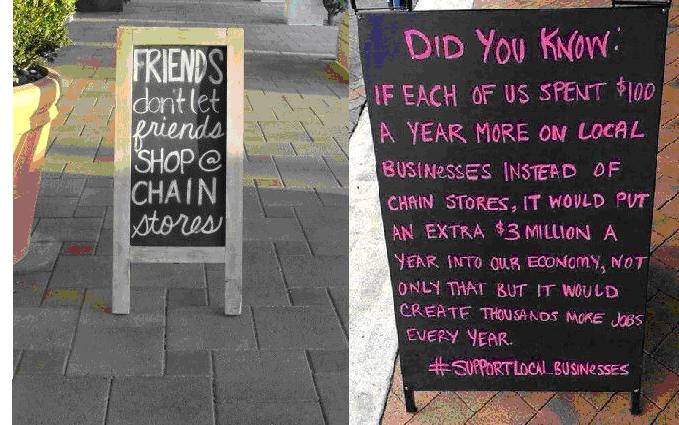 FRIENDS
don't let
friends
SHOP @
CHAIN
stores
DID YOU KNOW:
IF EACH OF US SPENT $100
A YEAR MORE ON LOCAL
BUSINESSES INSTEAD OF
CHAIN STORES, IT WOULD PUT
AN EXTRA $3 MILLION A
YEAR INTO OUR ECONOMY, NOT
ONLY THAT BUT IT WOULD
CREATE THOUSANDS MORE JOBS
EVERY YEAR.
#SUPPORTLOCALBUSINESSES